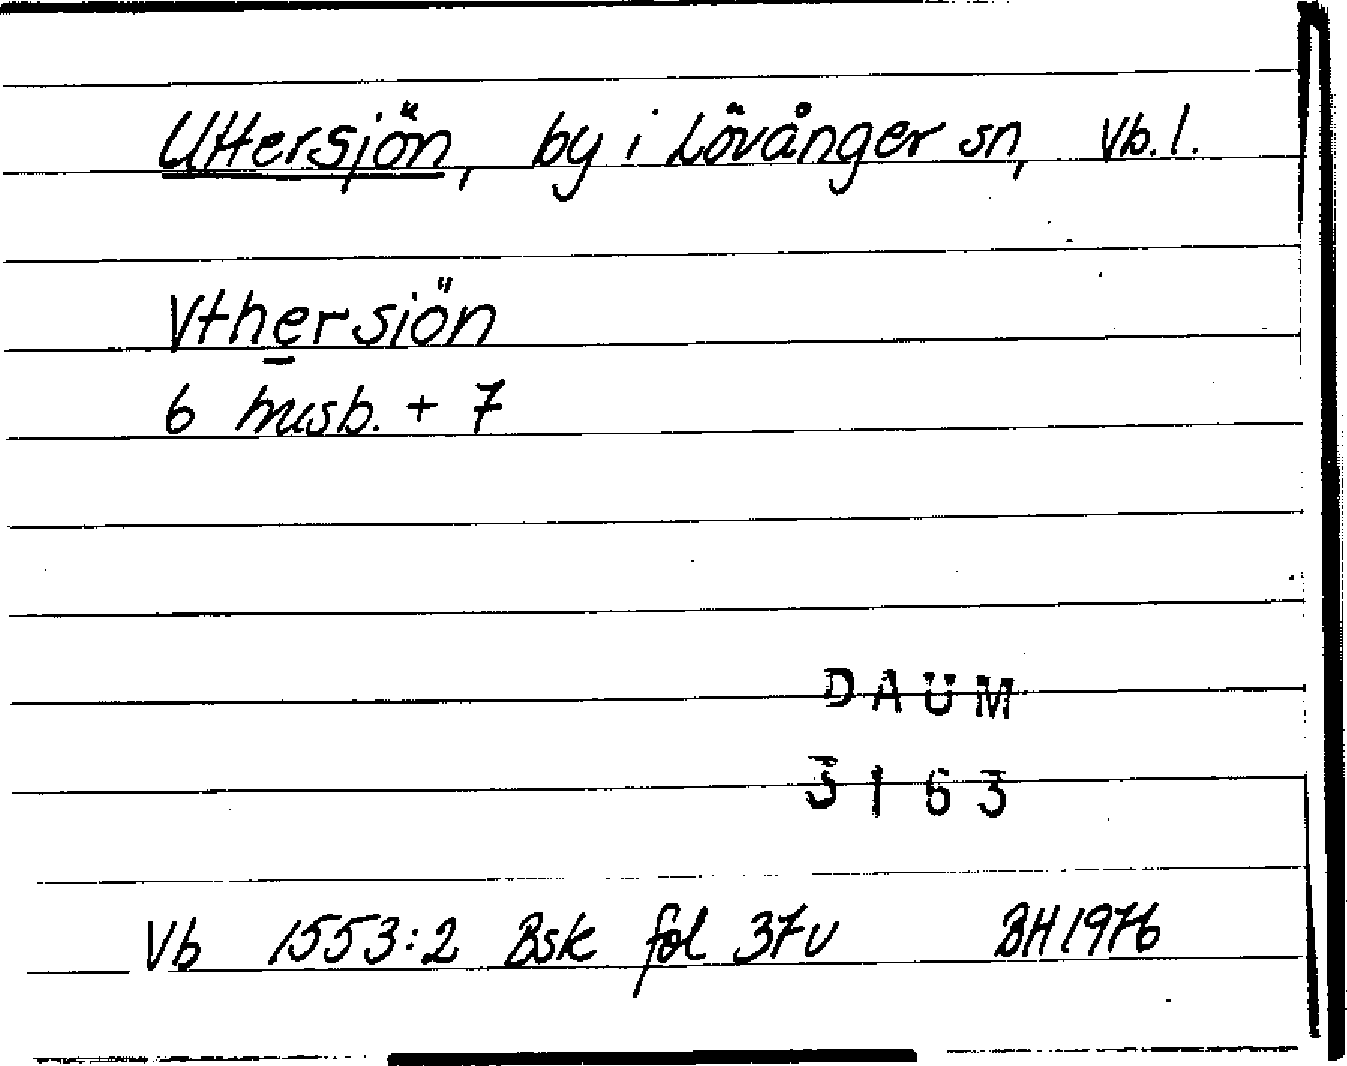 Uttersjön, by i Lövånger sn, Vb. l.
Vthersiön
6 husb. + 7
DAUM
3163
Vb 1553:2 Bsk fol 37v BH 1976